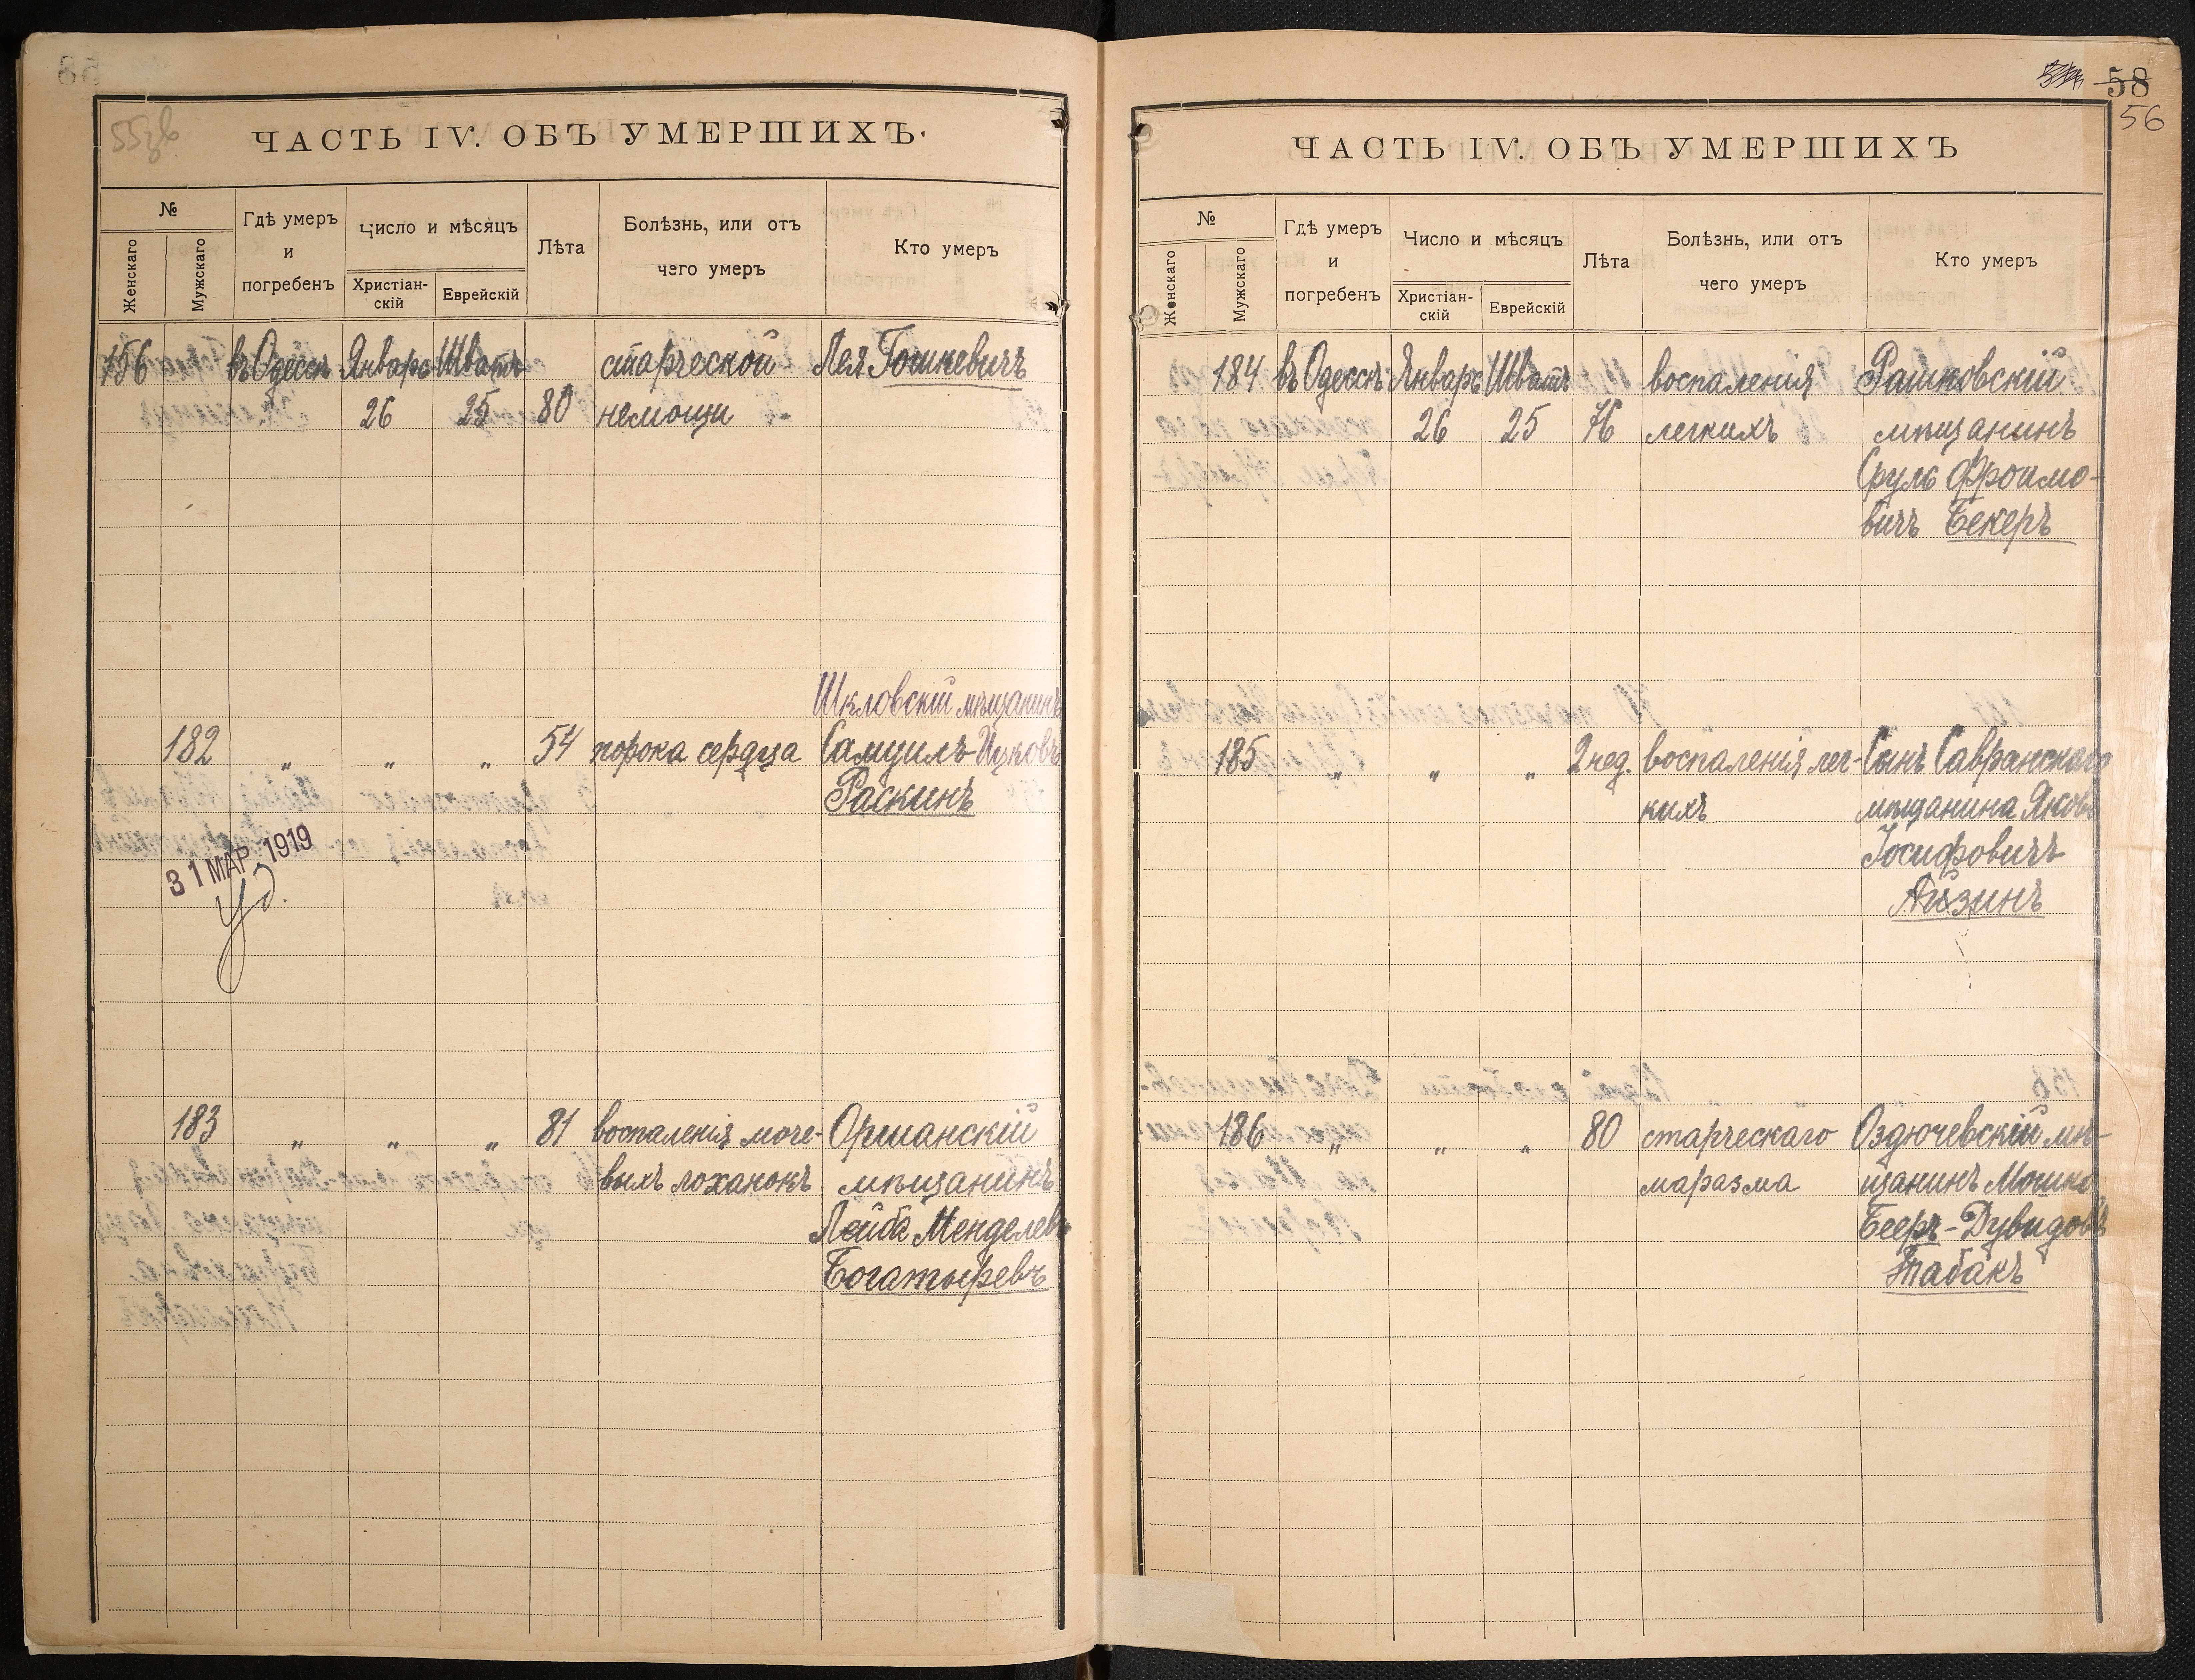 55зв
ЧАСТЬ IV. ОБЪ УМЕРШИХЪ.
№
Женскаго
Мужскаго
Гдѣ умеръ
и
погребенъ
Число и мѣсяцъ
Христіан-
скій
Еврейскій
Лѣта
Болѣзнь, или отъ
чего умеръ
Кто умеръ
156 въ Одессѣ Январь Шватъ старческой Лея Гошкевичъ
26 25 80 немощи
Шкловскій мѣщанинъ
182 „ „ „ 54 порока сердца Самуилъ-Ицковъ
Раскинъ
31 МАР. 1919
183 „ „ „ 81 воспаленія моче- Оршанскій
выхъ лоханокъ мѣщанинъ
Лейба Менделев
Богатыревъ
58
56
ЧАСТЬ IV. ОБЪ УМЕРШИХЪ
№
Женскаго
Мужскаго
Гдѣ умеръ
и
погребенъ
Число и мѣсяцъ
Христіан-
скій
Еврейскій
Лѣта
Болѣзнь, или отъ
чего умеръ
Кто умеръ
184 въ Одессѣ Январь Шватъ воспаленія Рашковскій
26 25 76 легкихъ мѣщанинъ
Сруль Фроимо-
вичъ Бекеръ
185 „ „ „ 2 нед. воспаленія лег- Сынъ Савранскаго
кихъ мѣщанина Яковъ
Іосифовичъ
Айзинъ
186 „ „ „ 80 старческаго Оздючевскій мѣ-
маразма щанинъ Мошко
Бееръ-Дувидовъ
Табакъ